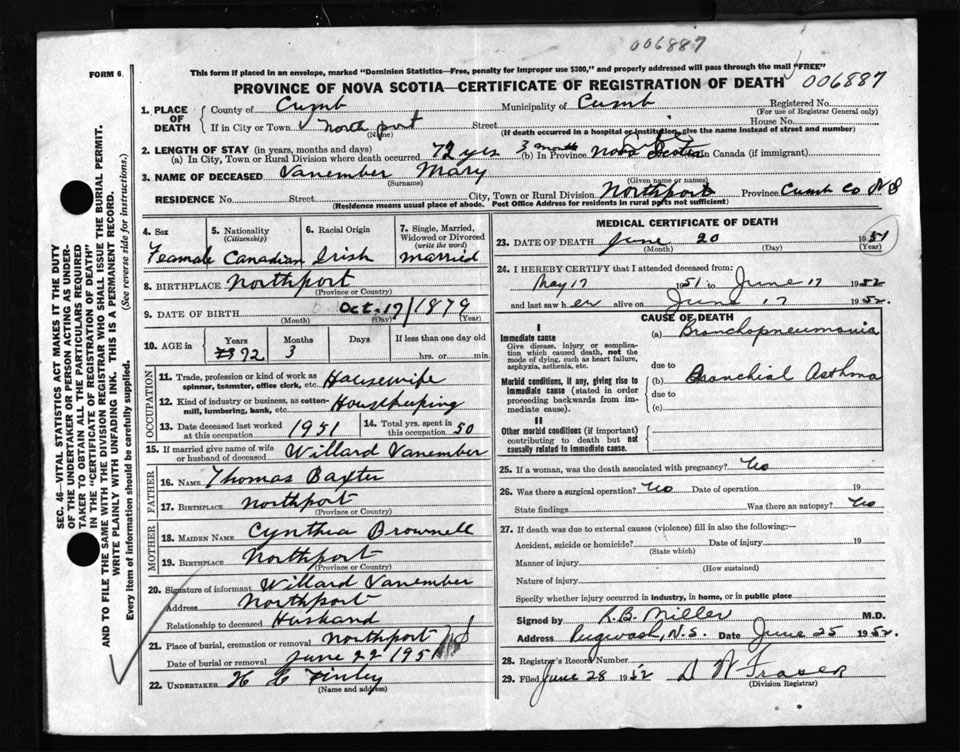 006887
FORM 6.
This form if placed in an envelope, marked "Dominion Statistics—Free, penalty for improper use $300," and properly addressed will pass through the mail "FREE"
PROVINCE OF NOVA SCOTIA—CERTIFICATE OF REGISTRATION OF DEATH 006887
1. PLACE OF DEATH County of Cumb Municipality of Cumb Registered No.
(For use of Registrar General only)
If in City or Town North port Street House No.
(Name) (If death occurred in a hospital or institution, give name instead of street and number)
2. LENGTH OF STAY (in years, months and days)
(a) In City, Town or Rural Division where death occurred 72 yrs 3 months (b) In Province Nova Scotia In Canada (if immigrant)
3. NAME OF DECEASED Vanember Mary
(Surname) (Given name or names)
RESIDENCE No. Street City, Town or Rural Division Northport Province Cumb Co NS
(Residence means usual place of abode. Post Office Address for residents in rural parts not sufficient)
4. Sex Feamale
5. Nationality (Citizenship) Canadian
6. Racial Origin Irish
7. Single, Married, Widowed or Divorced (write the word) married
8. BIRTHPLACE Northport
(Province or Country)
9. DATE OF BIRTH Oct. 17/1879
(Month) (Day) (Year)
10. AGE in Years 72 Months 3 Days If less than one day
hrs. or min.
OCCUPATION
11. Trade, profession or kind of work as spinner, teamster, office clerk, etc. Housewife
12. Kind of industry or business, as cotton-mill, lumbering, bank, etc. Housekeeping
13. Date deceased last worked at this occupation 1951
14. Total yrs. spent in this occupation 50
15. If married give name of wife or husband of deceased Willard Vanember
FATHER
16. NAME Thomas Baxter
17. BIRTHPLACE Northport
(Province or Country)
MOTHER
18. MAIDEN NAME Cynthia Brownell
19. BIRTHPLACE Northport
(Province or Country)
20. Signature of informant Willard Vanember
Address Northport
Relationship to deceased Husband
21. Place of burial, cremation or removal Northport NS
Date of burial or removal June 22 1951
22. UNDERTAKER H C Finley
(Name and address)
MEDICAL CERTIFICATE OF DEATH
23. DATE OF DEATH June 20 1951
(Month) (Day) (Year)
24. I HEREBY CERTIFY that I attended deceased from:
May 17 1951 to June 17 1952
and last saw her alive on June 17 1952.
CAUSE OF DEATH
I
Immediate cause
Give disease, injury or complication which caused death, not the mode of dying, such as heart failure, asphyxia, asthenia, etc.
(a) Bronchopneumonia
due to
Morbid conditions, if any, giving rise to immediate cause (stated in order proceeding backwards from immediate cause).
(b) Bronchial Asthma
due to
(c)
II
Other morbid conditions (if important) contributing to death but not causally related to immediate cause.
25. If a woman, was the death associated with pregnancy? No
26. Was there a surgical operation? No Date of operation 19
State findings Was there an autopsy? No
27. If death was due to external causes (violence) fill in also the following:—
Accident, suicide or homicide? Date of injury 19
(State which)
Manner of injury
(How sustained)
Nature of injury
Specify whether injury occurred in industry, in home, or in public place
Signed by R.B. Miller M.D.
Address Pugwash, N.S. Date June 25 1952.
28. Registrar's Record Number
29. Filed June 28 1952 D W Fraser
(Division Registrar)
SEC. 46—VITAL STATISTICS ACT MAKES IT THE DUTY
OF THE UNDERTAKER OR PERSON ACTING AS UNDER-
TAKER TO OBTAIN ALL THE PARTICULARS REQUIRED
IN THE "CERTIFICATE OF REGISTRATION OF DEATH"
AND TO FILE THE SAME WITH THE DIVISION REGISTRAR WHO SHALL ISSUE THE BURIAL PERMIT.
WRITE PLAINLY WITH UNFADING INK. THIS IS A PERMANENT RECORD.
Every item of information should be carefully supplied. (See reverse side for instructions.)